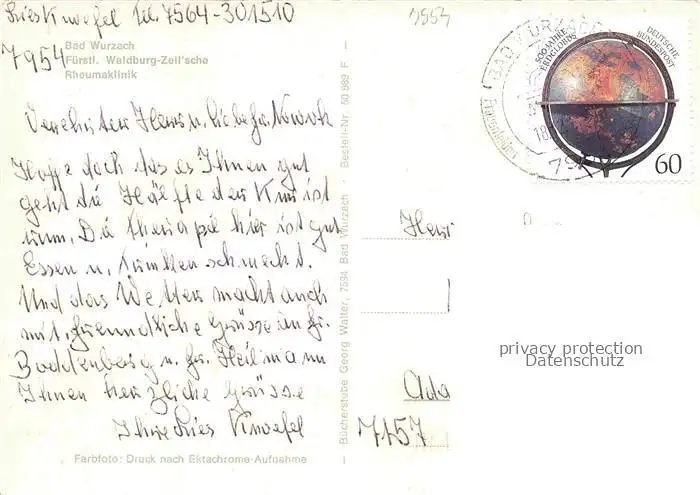 Lies Knoefel Tel. 7564-301510
7954
Bad Wurzach
Fürstl. Waldburg-Zeil'sche
Rheumaklinik
Verehrter Herr u. liebe Fr. Nowok
Hoffe doch das es Ihnen gut
geht die Hälfte der Kur ist
rum. Die Therapie hier ist gut
Essen u. trinken schmeckt.
Und das Wetter macht auch
mit. freundliche Grüsse an Fr.
u. Fr. Heilmann
Ihnen herzliche Grüsse
Ihre Lies Knoefel
Farbfoto: Druck nach Ektachrome-Aufnahme
Bücherstube Georg Walter, 7594 Bad Wurzach - Bestell-Nr 50 989 F
500 JAHRE
ERDGLOBUS
DEUTSCHE
BUNDESPOST
60
BAD WURZACH
Herr
7157
privacy protection
Datenschutz